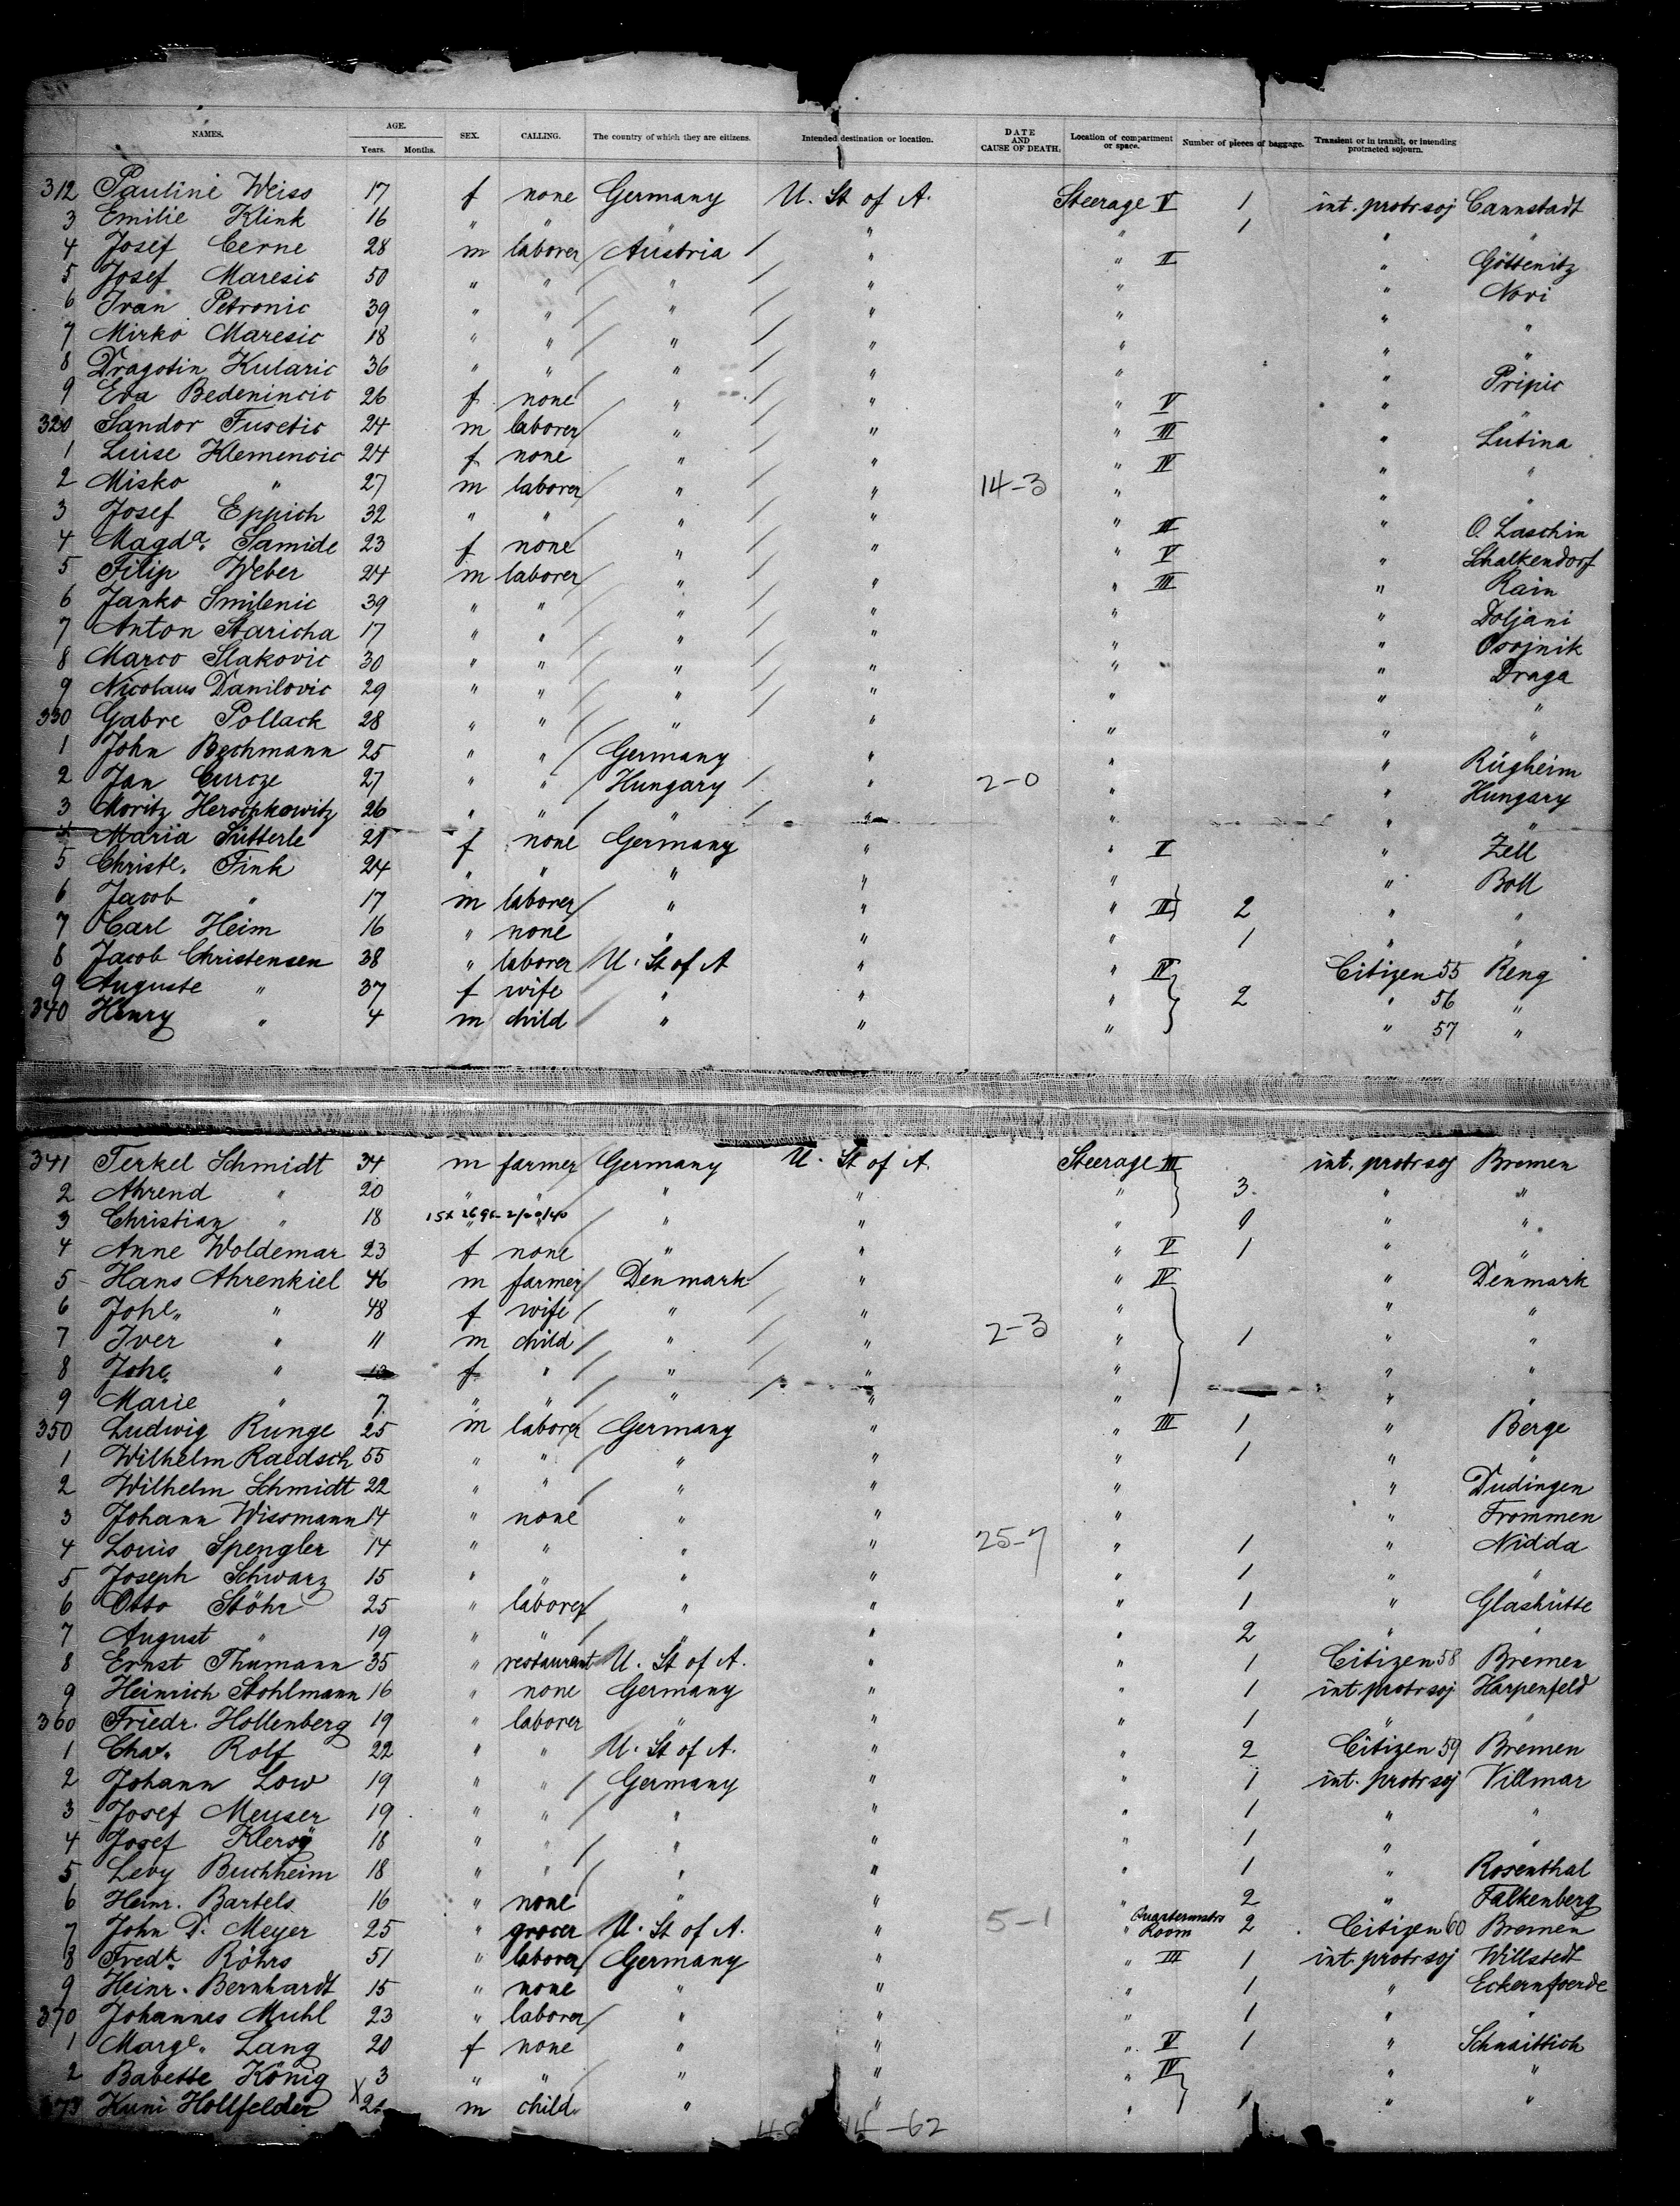 NAMES. AGE. SEX. CALLING. The country of which they are citizens. Intended destination or location. DATE AND CAUSE OF DEATH. Location of compartment or space. Number of pieces of baggage. Transient or in transit, or intending protracted sojourn.
Years. Months.
312 Pauline Weiss 17 f none Germany U. St of A. Steerage V 1 int. protr soj Cannstadt
3 Emilie Klink 16 " " " " " 1 " "
4 Josef Cerne 28 m laborer Austria " " II " Göttenitz
5 Josef Maresic 50 " " " " " " Novi
6 Ivan Petronic 39 " " " " " " "
7 Mirko Maresic 18 " " " " " " "
8 Dragotin Kularic 36 " " " " " " Pripic
9 Eva Bedenincic 26 f none " " " V " "
320 Sandor Fusetic 24 m laborer " " " III " Lutina
1 Luise Klemencic 24 f none " " " IV " "
2 Misko " 27 m laborer " " 14-3 " " "
3 Josef Eppich 32 " " " " " III " O. Laschin
4 Magda. Samide 23 f none " " " V " Schalkendorf
5 Filip Weber 24 m laborer " " " III " Rain
6 Janko Smilenic 39 " " " " " " Doljani
7 Anton Staricha 17 " " " " " " Osojnik
8 Marco Slakovic 30 " " " " " " Draga
9 Nicolaus Danilovic 29 " " " " " " "
330 Gabre Pollack 28 " " " " " " "
1 John Bechmann 25 " " Germany " " " Rügheim
2 Jan Curcze 27 " " Hungary " 2-0 " " Hungary
3 Moritz Herschkowitz 26 " " " " " " "
4 Maria Sütterle 21 f none Germany " " V " Zell
5 Christe. Fink 24 " " " " " " Boll
6 Jacob " 17 m laborer " " " III 2 " "
7 Carl Heim 16 " none " " " 1 " "
8 Jacob Christensen 38 " laborer U. St of A " " IV Citizen 55 Reng
9 Auguste " 37 f wife " " " 2 " 56 "
340 Henry " 4 m child " " " " 57 "
341 Terkel Schmidt 34 m farmer Germany U. St of A. Steerage III int. protr soj Bremen
2 Ahrend " 20 " " " " " 3 " "
3 Christian " 18 " " " " " 1 " "
4 Anne Woldemar 23 f none " " " V 1 " "
5 Hans Ahrenkiel 46 m farmer Denmark " " IV " Denmark
6 Johe. " 48 f wife " " " " "
7 Iver " 11 m child " " 2-3 " 1 " "
8 Johe. " f " " " " " "
9 Marie " 7 " " " " " " "
350 Ludwig Runge 25 m laborer Germany " " III 1 " Berge
1 Wilhelm Raedsch 55 " " " " " 1 " "
2 Wilhelm Schmidt 22 " " " " " " Dudingen
3 Johann Wissmann 14 " none " " " " Frommen
4 Louis Spengler 14 " " " " 25-7 " 1 " Nidda
5 Joseph Schwarz 15 " " " " " 1 " "
6 Otto Stöhr 25 " laborer " " " 1 " Glashütte
7 August " 19 " " " " " 2 " "
8 Ernst Thumann 35 " restaurant U. St of A. " " 1 Citizen 58 Bremen
9 Heinrich Stohlmann 16 " none Germany " " 1 int. protr soj Harpenfeld
360 Friedr. Hollenberg 19 " laborer " " " 1 " "
1 Chas. Rolf 22 " " U. St of A. " " 2 Citizen 59 Bremen
2 Johann Low 19 " " Germany " " 1 int. protr soj Villmar
3 Josef Meuser 19 " " " " " 1 " "
4 Josef Klersy 18 " " " " " 1 " "
5 Levy Buchheim 18 " " " " " 1 " Rosenthal
6 Heinr. Bartels 16 " none " " " 2 " Falkenberg
7 John D. Meyer 25 " grocer U. St of A. " 5-1 " Quartermstrs Room 2 Citizen 60 Bremen
8 Fredk. Röhrs 51 " laborer Germany " " III 1 int. protr soj Willstedt
9 Heinr. Bernhardt 15 " none " " " 1 " Eckernfoerde
370 Johannes Muhl 23 " laborer " " " 1 " "
1 Marge. Lang 20 f none " " " V 1 " Schnaittich
2 Babette König 3 " " " " " IV " "
373 Kuni Hollfelder X m child " " " 1 " "
14-62